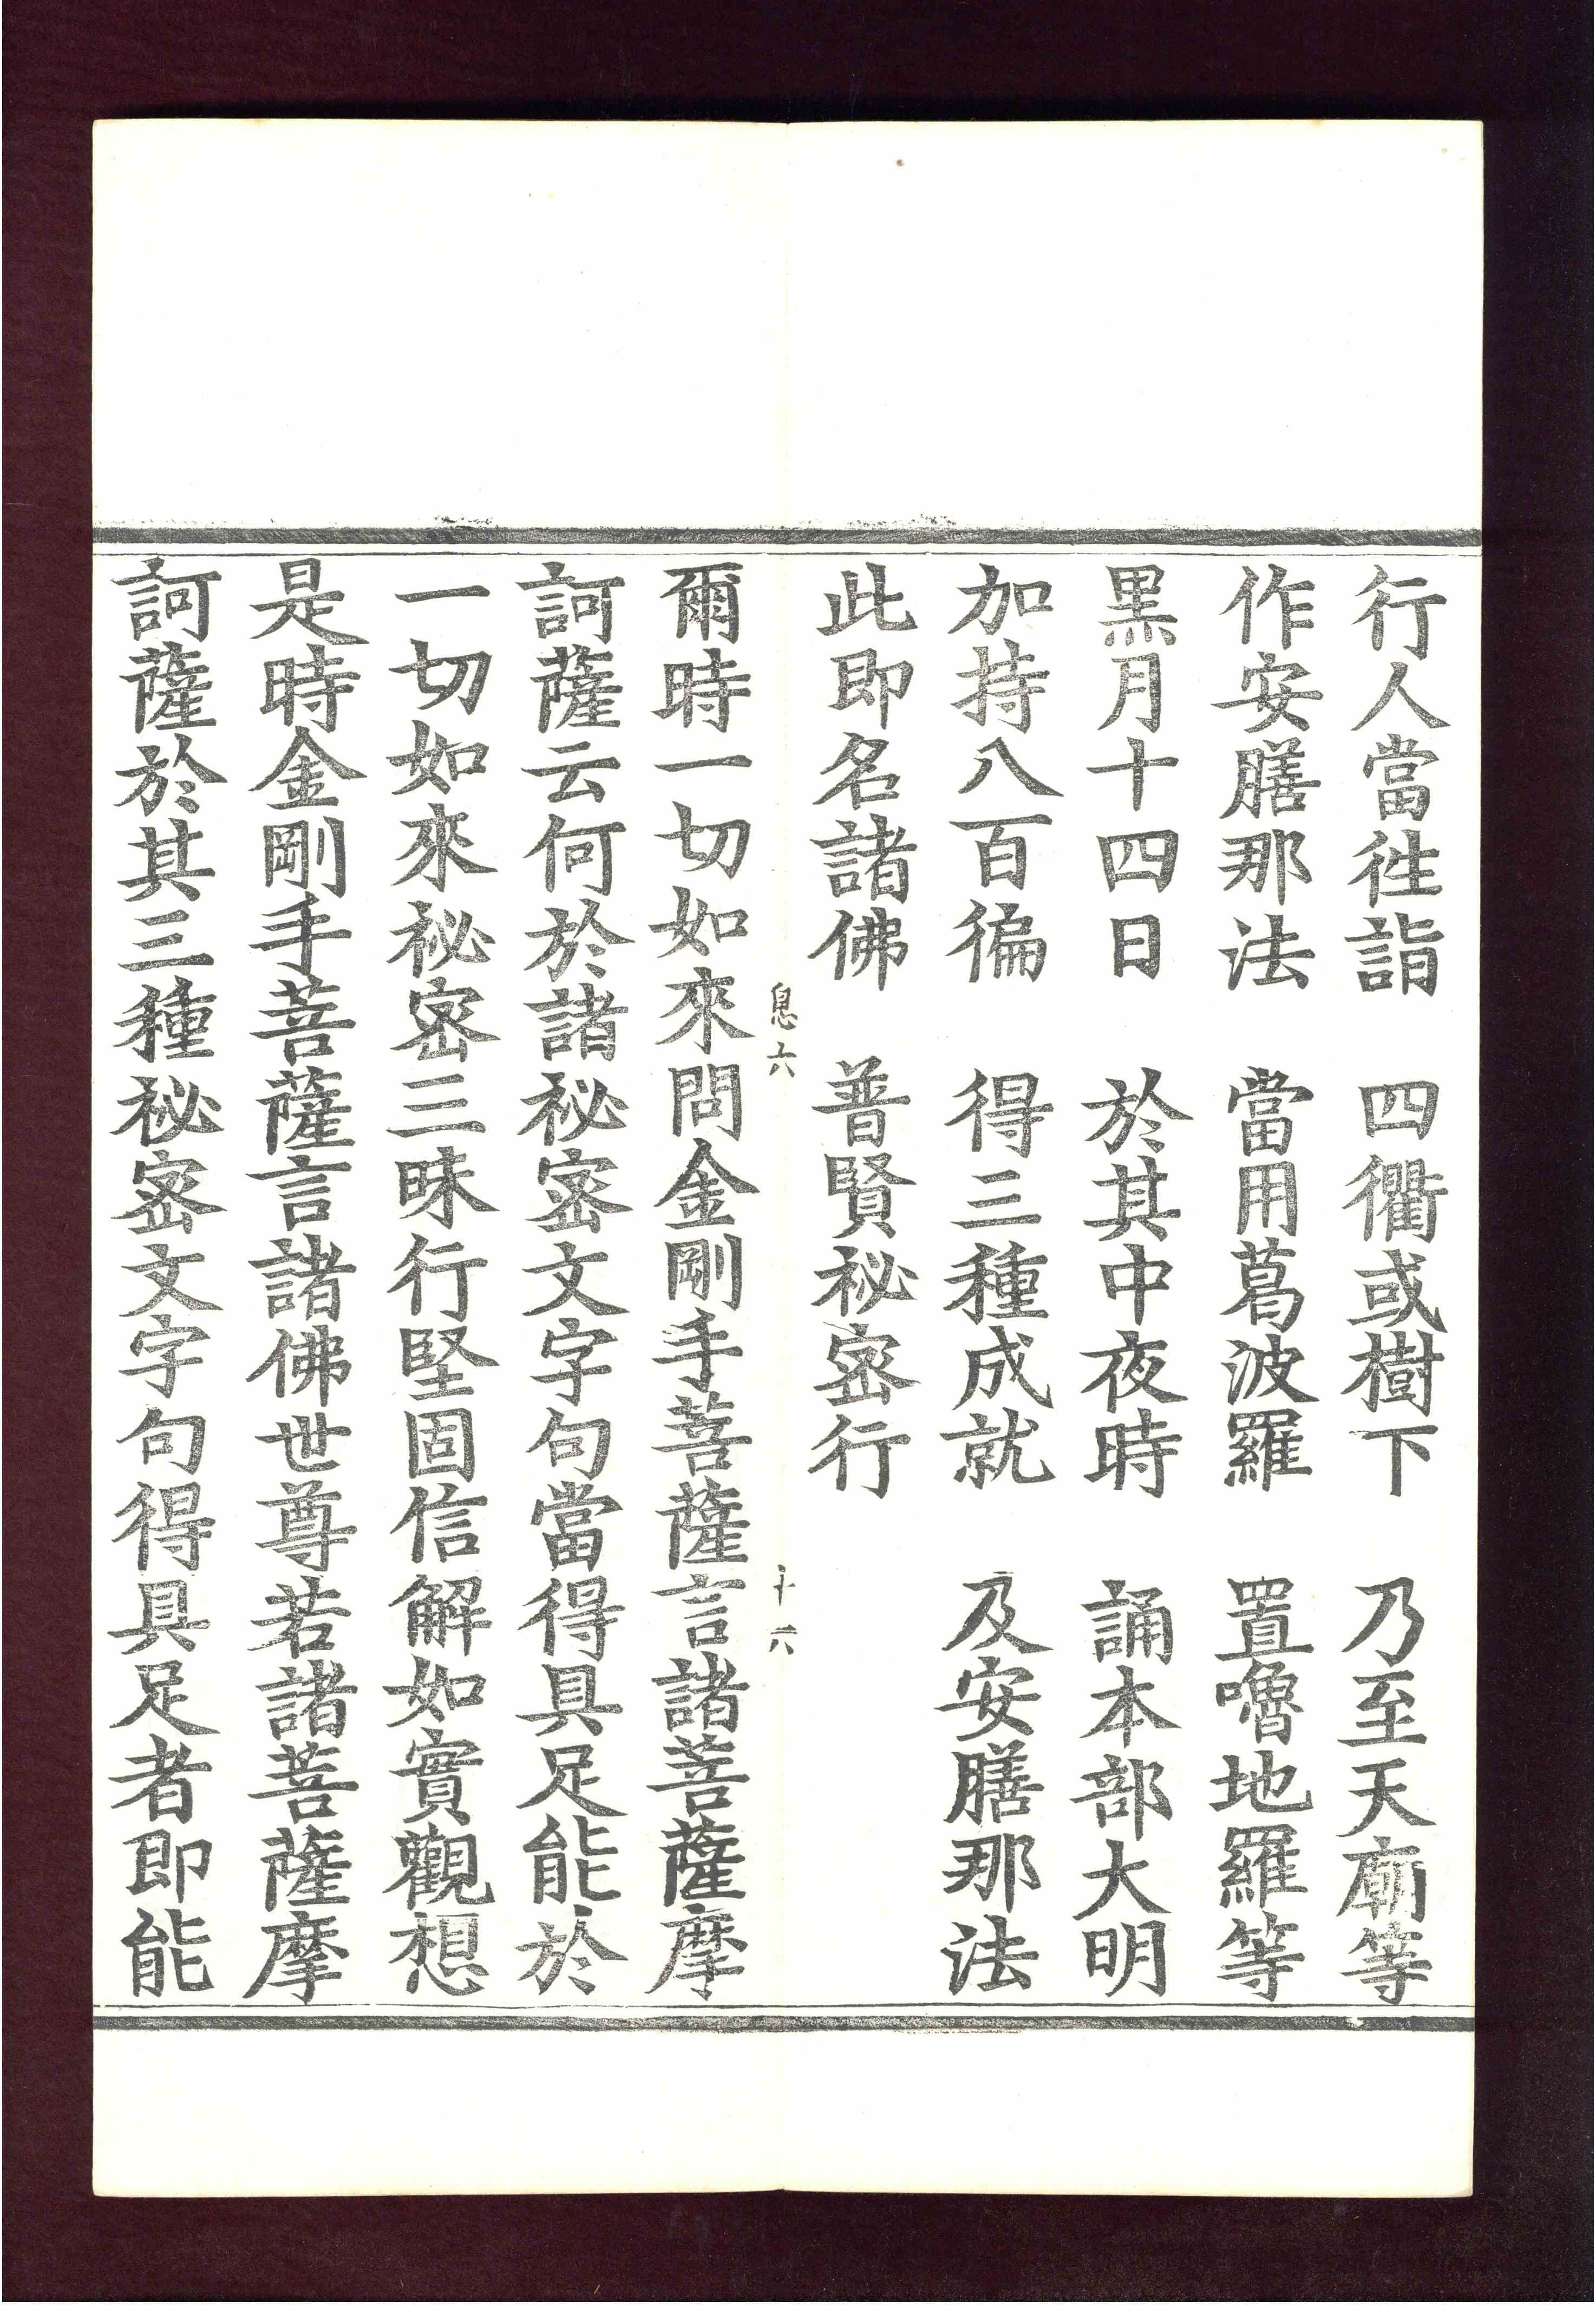 行人當徃詣　四衢或樹下　乃至天廟等
作安膳那法　當用葛波羅　置嚕地羅等
黑月十四日　於其中夜時　誦本部大明
加持八百徧　得三種成就　及安膳那法
此即名諸佛　普賢秘密行
息六　十六
爾時一切如來問金剛手菩薩言諸菩薩摩
訶薩云何於諸秘密文字句當得具足能於
一切如來秘密三昧行堅固信解如實觀想
是時金剛手菩薩言諸佛世尊若諸菩薩摩
訶薩於其三種秘密文字句得具足者即能